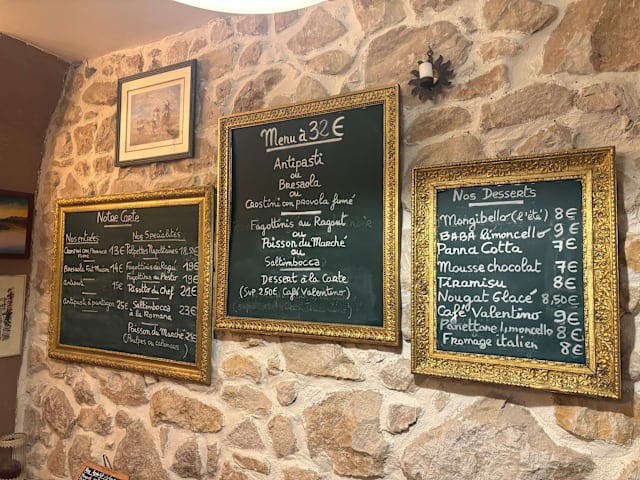 Notre Carte
Nos entrées
Crostini con Provola fumé 13€
Bresaola 14€
Antipasti 15€
Antipasti à partager 25€
Nos Spécialités
Polpettes Napolitaines 18.50€
Fagottinis au Ragù 19€
Fagottinis au Pesto 19€
Risotto del Chef 21€
Saltimbocca 23€
à la Romana
Poisson du Marché 24€
(Poulpes ou calamars)
Menu à 32€
Antipasti
ou
Bresaola
ou
Crostini con provola fumé
Fagottinis au Ragout
ou
Poisson du Marché
ou
Saltimbocca
Dessert à la Carte
(Sup 2.50€ Café Valentino)
Nos Desserts
Mongibello (l'été) 8€
BABA limoncello 9€
Panna Cotta 7€
Mousse chocolat 7€
Tiramisu 8€
Nougat Glacé 8,50€
Café Valentino 9€
Panettone limoncello 8€
Fromage italien 8€